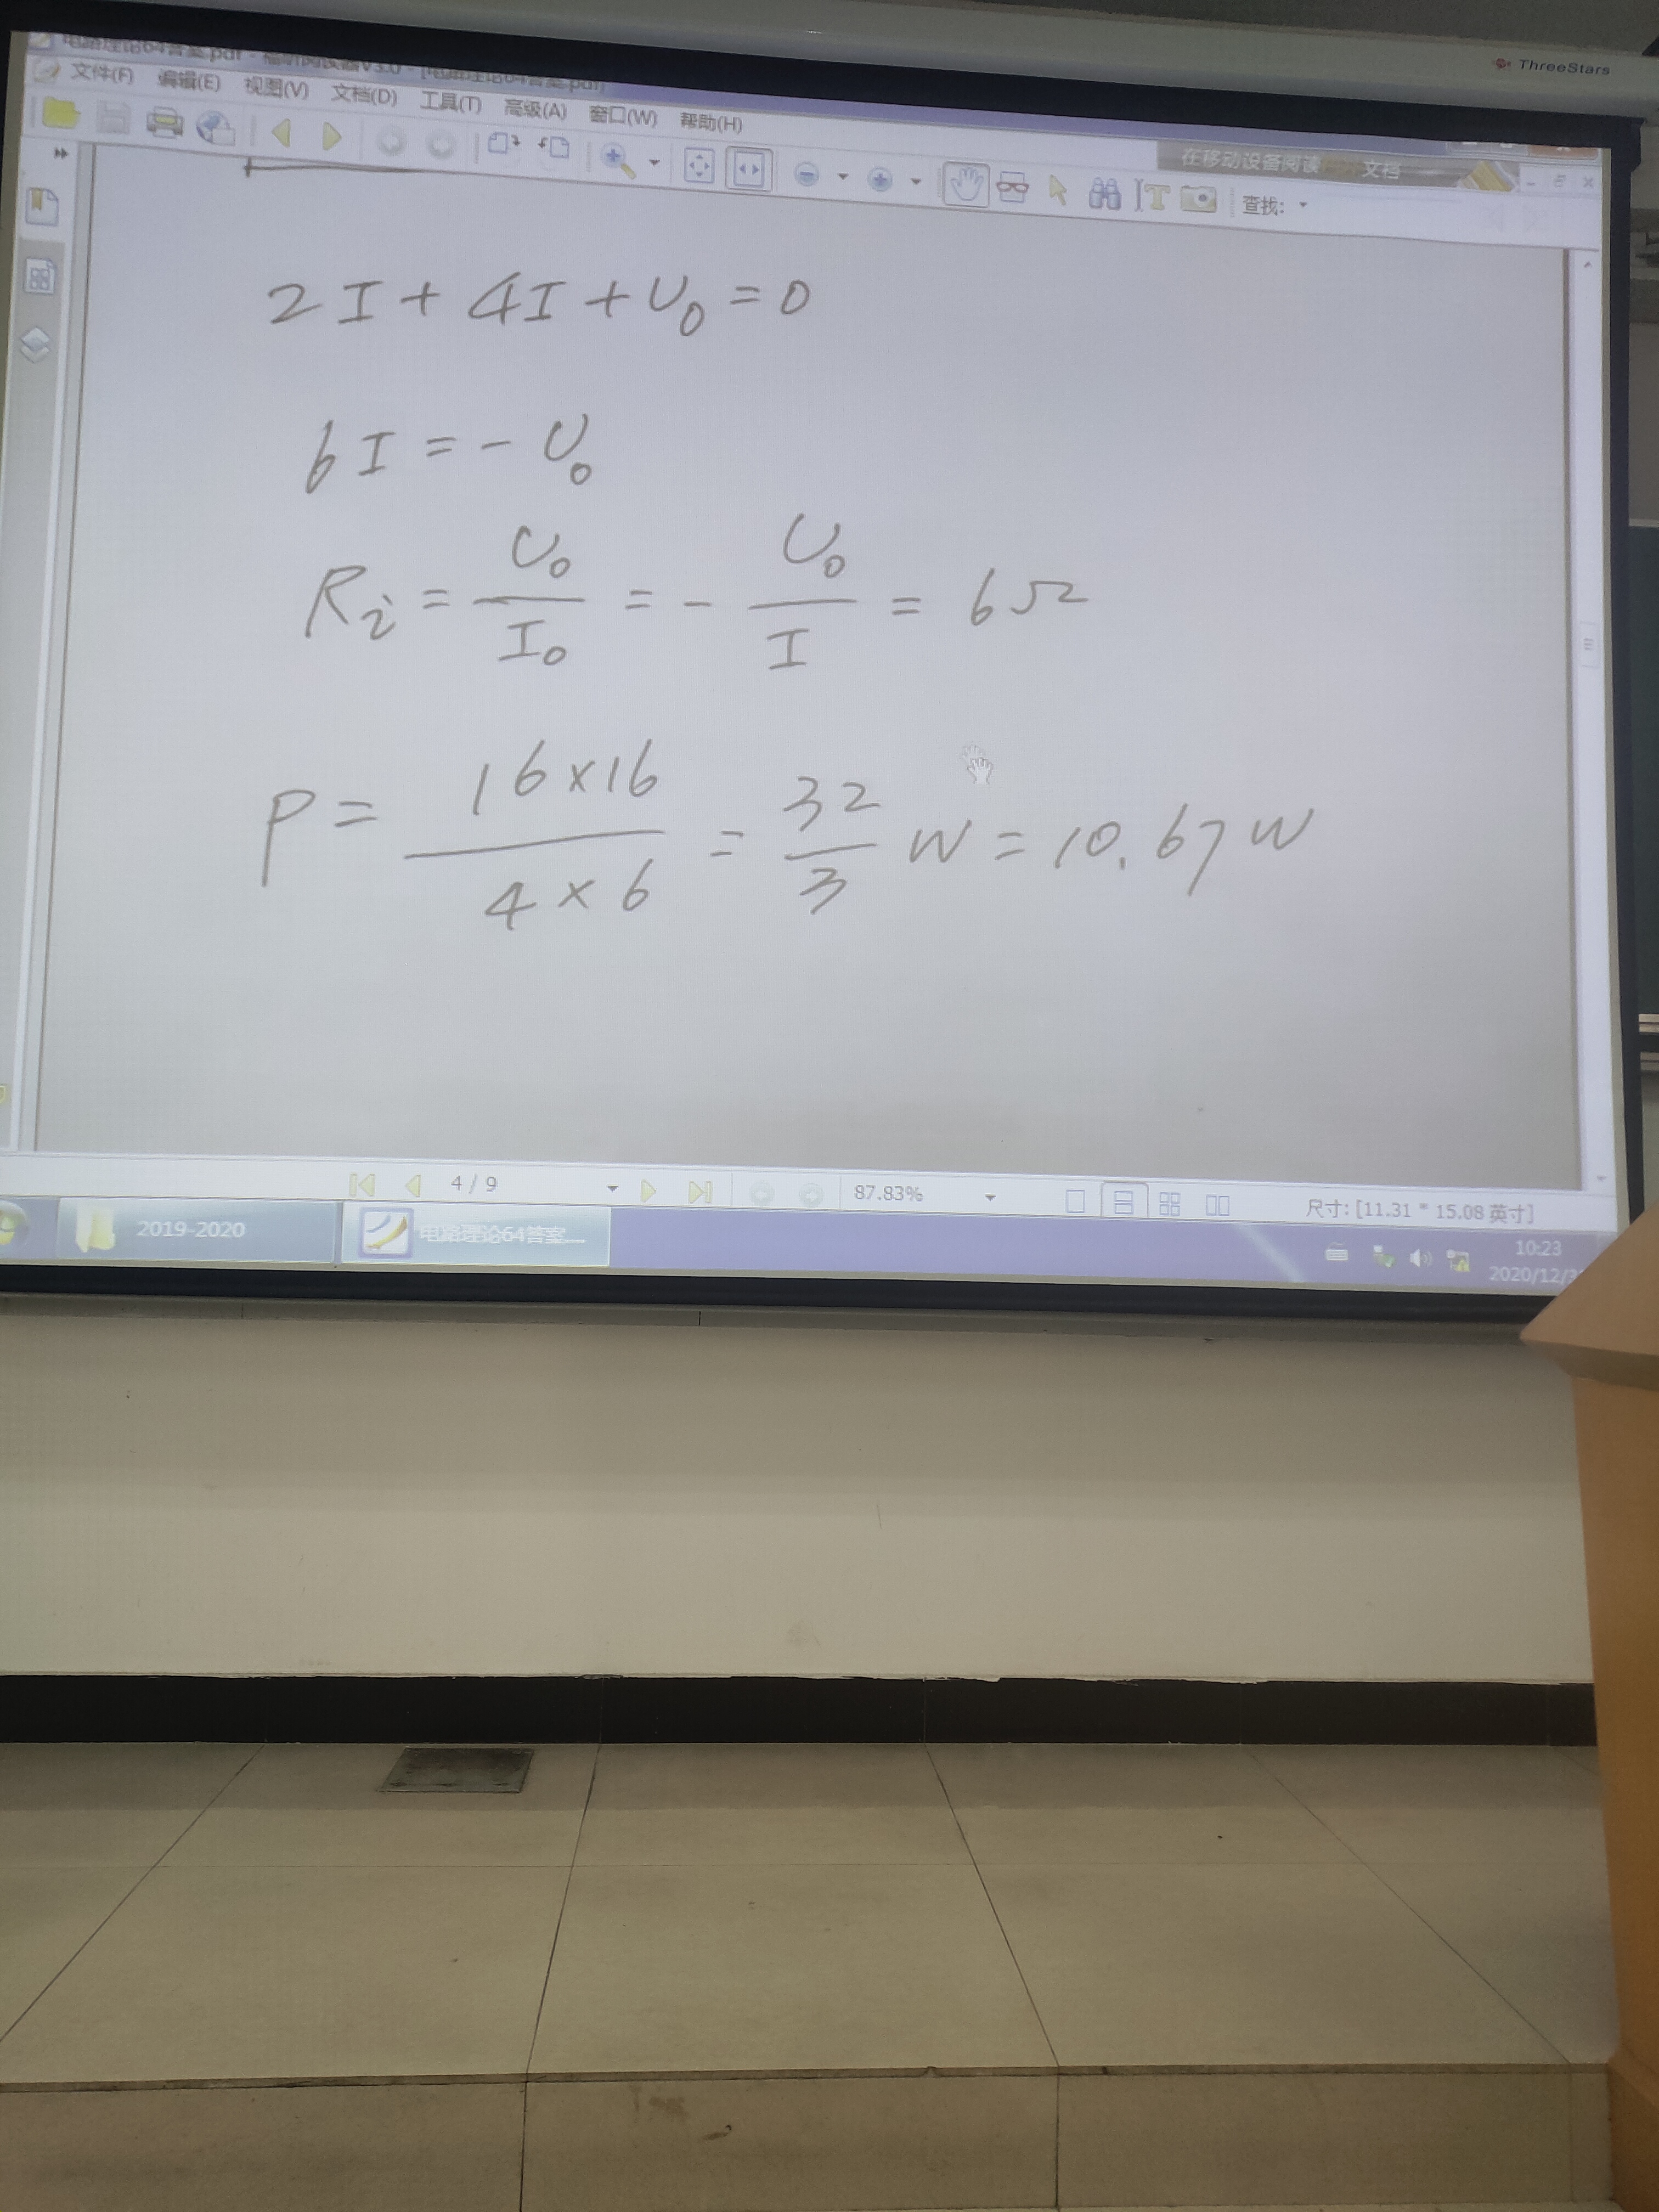 ThreeStars
电路理论64答案.pdf - 福昕阅读器V3.0 - [电路理论64答案.pdf]
文件(F) 编辑(E) 视图(V) 文档(D) 工具(T) 高级(A) 窗口(W) 帮助(H)
在移动设备阅读 文档
查找:
2I + 4I + U₀ = 0
6I = - U₀
Ri = U₀/I₀ = - U₀/I = 6Ω
P = 16×16/4×6 = 32/3 W = 10.67W
4 / 9
87.83%
尺寸: [11.31 * 15.08 英寸]
2019-2020
电路理论64答案....
10:23
2020/12/3